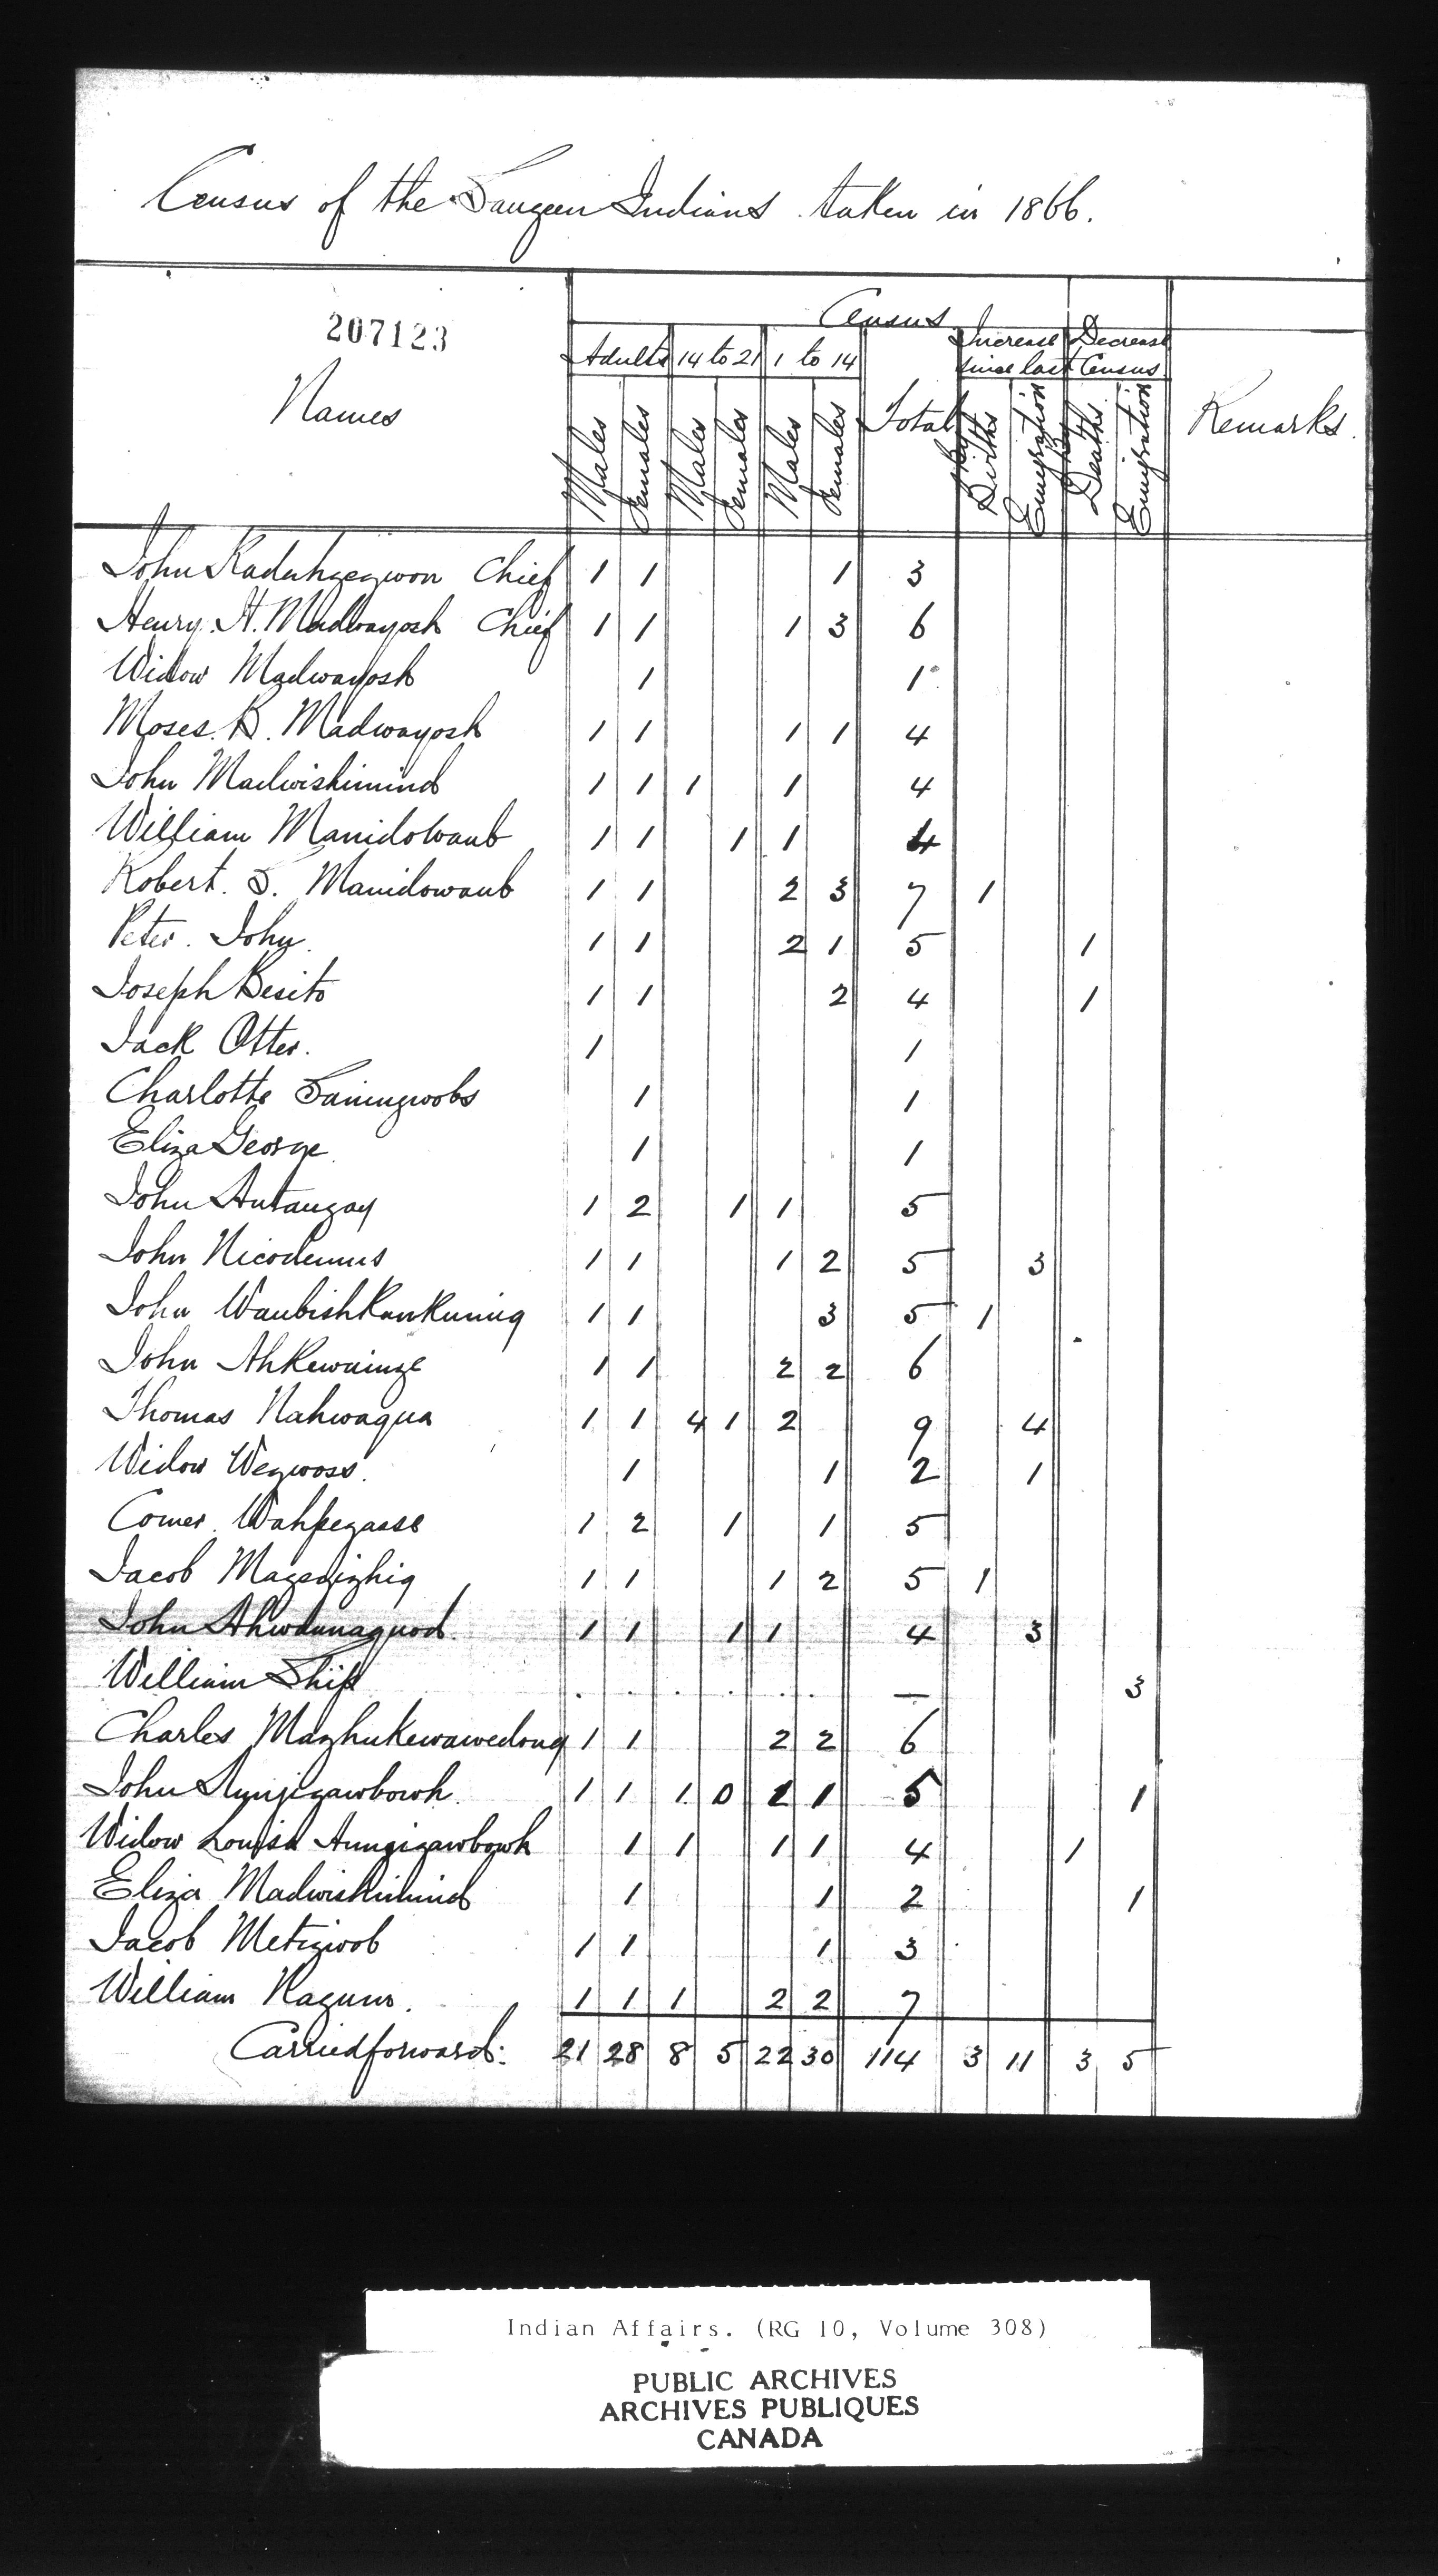 Census of the Saugeen Indians taken in 1866.
207123
Names
Census
Remarks.
Adults 14 to 21 1 to 14 Total Increase since last Decrease Census
Males Females Males Females Males Females by Births Emigration by Deaths Emigration
John Kaduhgegwon Chief 1 1 1 3
Henry. H. Madwayosh Chief 1 1 1 3 6
Widow Madwayosh 1 1
Moses. B. Madwayosh 1 1 1 1 4
John Madwishimind 1 1 1 1 4
William Manidowaub 1 1 1 1 4
Robert. S. Manidowaub 1 1 2 3 7 1
Peter. John. 1 1 2 1 5 1
Joseph Besito 1 1 2 4 1
Jack Otter. 1 1
Charlotte 1 1
Eliza George. 1 1
John Autaugay 1 2 1 1 5
John Nicodemus 1 1 1 2 5 3
John WaubishKauKuning 1 1 3 5 1
John AhKewainze 1 1 2 2 6
Thomas Nahwaqua 1 1 4 1 2 9 4
Widow Wegwoss. 1 1 2 1
Comer. Wahpegaase 1 2 1 1 5
Jacob Magedizhig 1 1 1 2 5 1
John Ahwdunaquod. 1 1 1 1 4 3
William Ship . . . . . . — 3
Charles Mazhukewawedong 1 1 2 2 6
John 1 1 1. 0 1 1 5 1
Widow Louisa Aungigawbowh 1 1 1 1 4 1
Eliza Madwishimind 1 1 2 1
Jacob Metigwob 1 1 1 3
William Kaguns. 1 1 1 2 2 7
Carried forward: 21 28 8 5 22 30 114 3 11 3 5
Indian Affairs. (RG 10, Volume 308)
PUBLIC ARCHIVES
ARCHIVES PUBLIQUES
CANADA